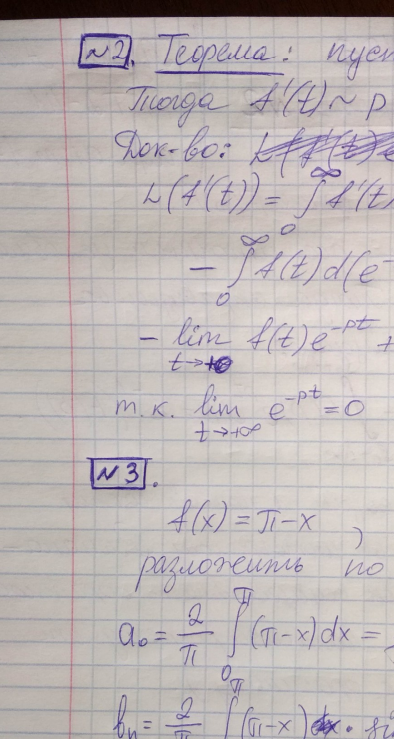 №2. Теорема: пуст
Тогда f'(t) ~ p
Док-во:
L(f'(t)) = ∫₀^∞ f'(t)
- ∫₀^∞ f(t) d(e⁻
- lim_{t→+0} f(t) e^{-pt} +
т.к. lim_{t→+∞} e^{-pt} = 0
№3.
f(x) = π-x ,
разложить по
a₀ = 2/π ∫₀^π (π-x) dx =
bₙ = 2/π ∫^π (π-x)